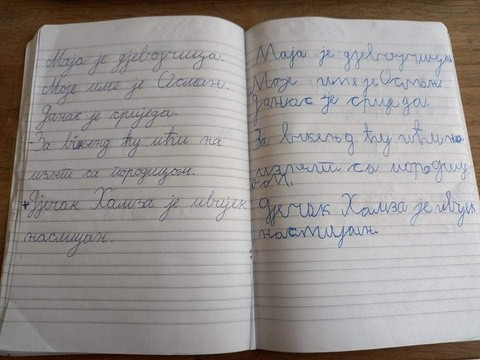 Маја је дјевојчица.
Моје име је Осман.
Данас је сриједа.
-За викенд ћу ићи на
излет са породицом.
Дјечак Хамза је увијек
насмијан.
Маја је дјевојчица
Моје име је Осман.
Данас је сриједа.
За викенд ћу ићи на
са породицом
Дјечак Хамза је увијек
насмијан.